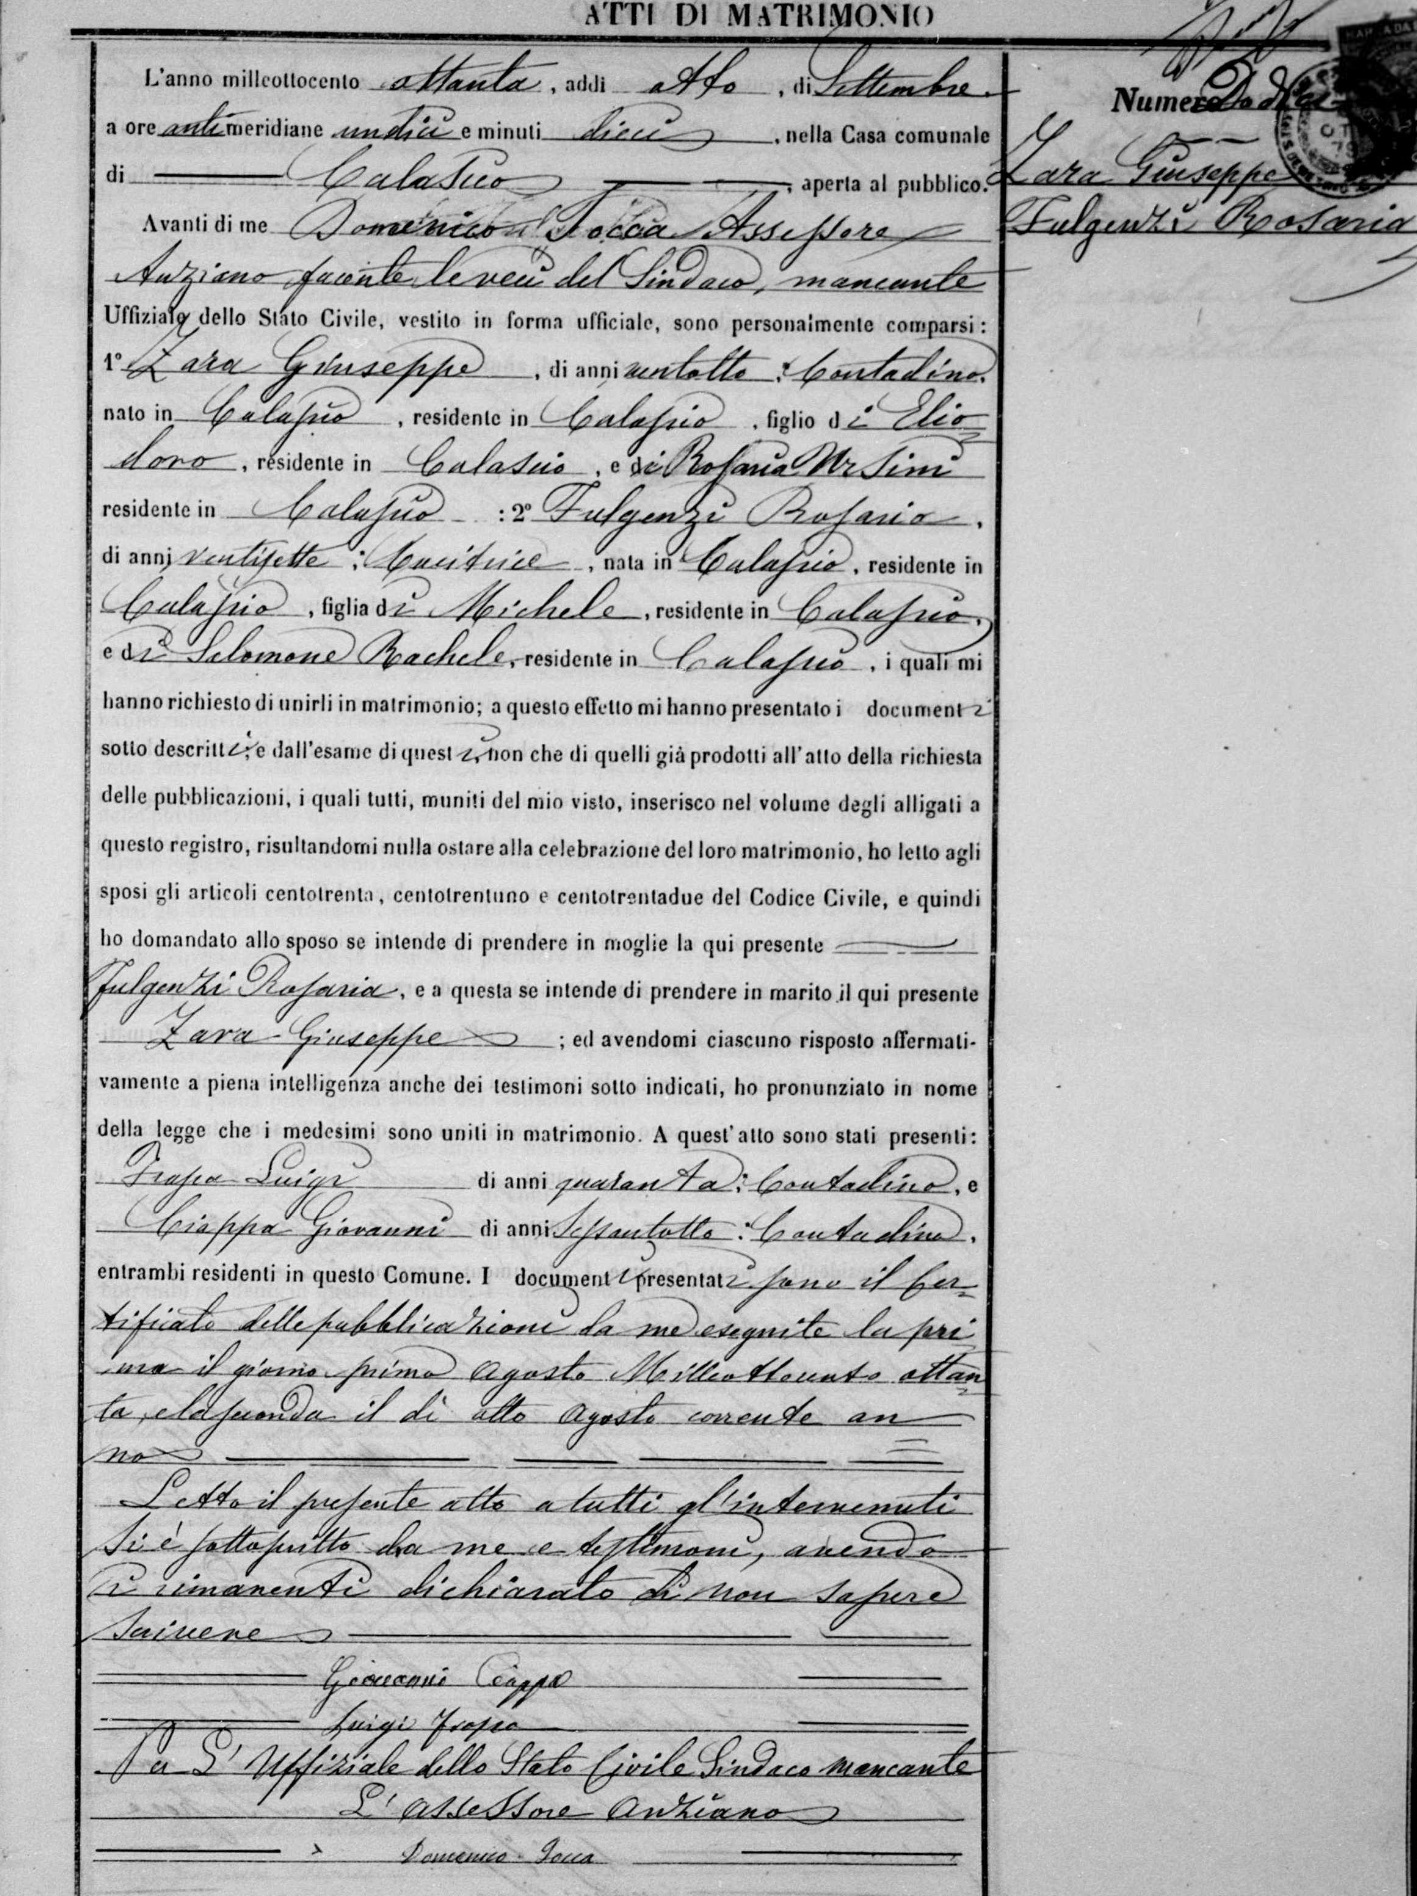 ATTI DI MATRIMONIO
Numero Dodici
Zara Giuseppe
Fulgenzi Rosaria
L'anno millcottocento ottanta, addi otto, di Settembre
a ore antimeridiane undici e minuti dieci, nella Casa comunale
di Calascio, aperta al pubblico.
Avanti di me Domenico Tocca Assessore
Anziano facente le veci del Sindaco, mancante
Uffiziale dello Stato Civile, vestito in forma ufficiale, sono personalmente comparsi:
1º Zara Giuseppe, di anni ventotto; Contadino,
nato in Calascio, residente in Calascio, figlio di Elio=
doro, residente in Calascio, e di Rosaria Ursini
residente in Calascio :2º Fulgenzi Rosaria,
di anni ventisette; Cucitrice, nata in Calascio, residente in
Calascio, figlia di Michele, residente in Calascio,
e di Salomone Rachele, residente in Calascio, i quali mi
hanno richiesto di unirli in matrimonio; a questo effetto mi hanno presentato i documenti
sotto descritti; e dall'esame di questi, non che di quelli già prodotti all'atto della richiesta
delle pubblicazioni, i quali tutti, muniti del mio visto, inserisco nel volume degli alligati a
questo registro, risultandomi nulla ostare alla celebrazione del loro matrimonio, ho letto agli
sposi gli articoli centotrenta, centotrentuno e centotrentadue del Codice Civile, e quindi
ho domandato allo sposo se intende di prendere in moglie la qui presente
Fulgenzi Rosaria, e a questa se intende di prendere in marito il qui presente
Zara Giuseppe; ed avendomi ciascuno risposto affermati-
vamente a piena intelligenza anche dei testimoni sotto indicati, ho pronunziato in nome
della legge che i medesimi sono uniti in matrimonio. A quest'atto sono stati presenti:
Frasca Luigi di anni quaranta; Contadino, e
Ciappa Giovanni di anni Sessantotto; Contadino,
entrambi residenti in questo Comune. I documenti presentati sono il Cer=
tificato delle pubblicazioni da me eseguite la pri
ma il giorno primo Agosto Milleottocento ottan=
ta, e la seconda il dì otto Agosto corrente an=
no
Letto il presente atto a tutti gl'intervenuti
si è sottoscritto da me e testimoni, avendo
i rimanenti dichiarato di non sapere
scrivere
Giovanni Ciappa
Luigi Frasca
Per L'Uffiziale dello Stato Civile Sindaco mancante
L'Assessore Anziano
Domenico Tocca